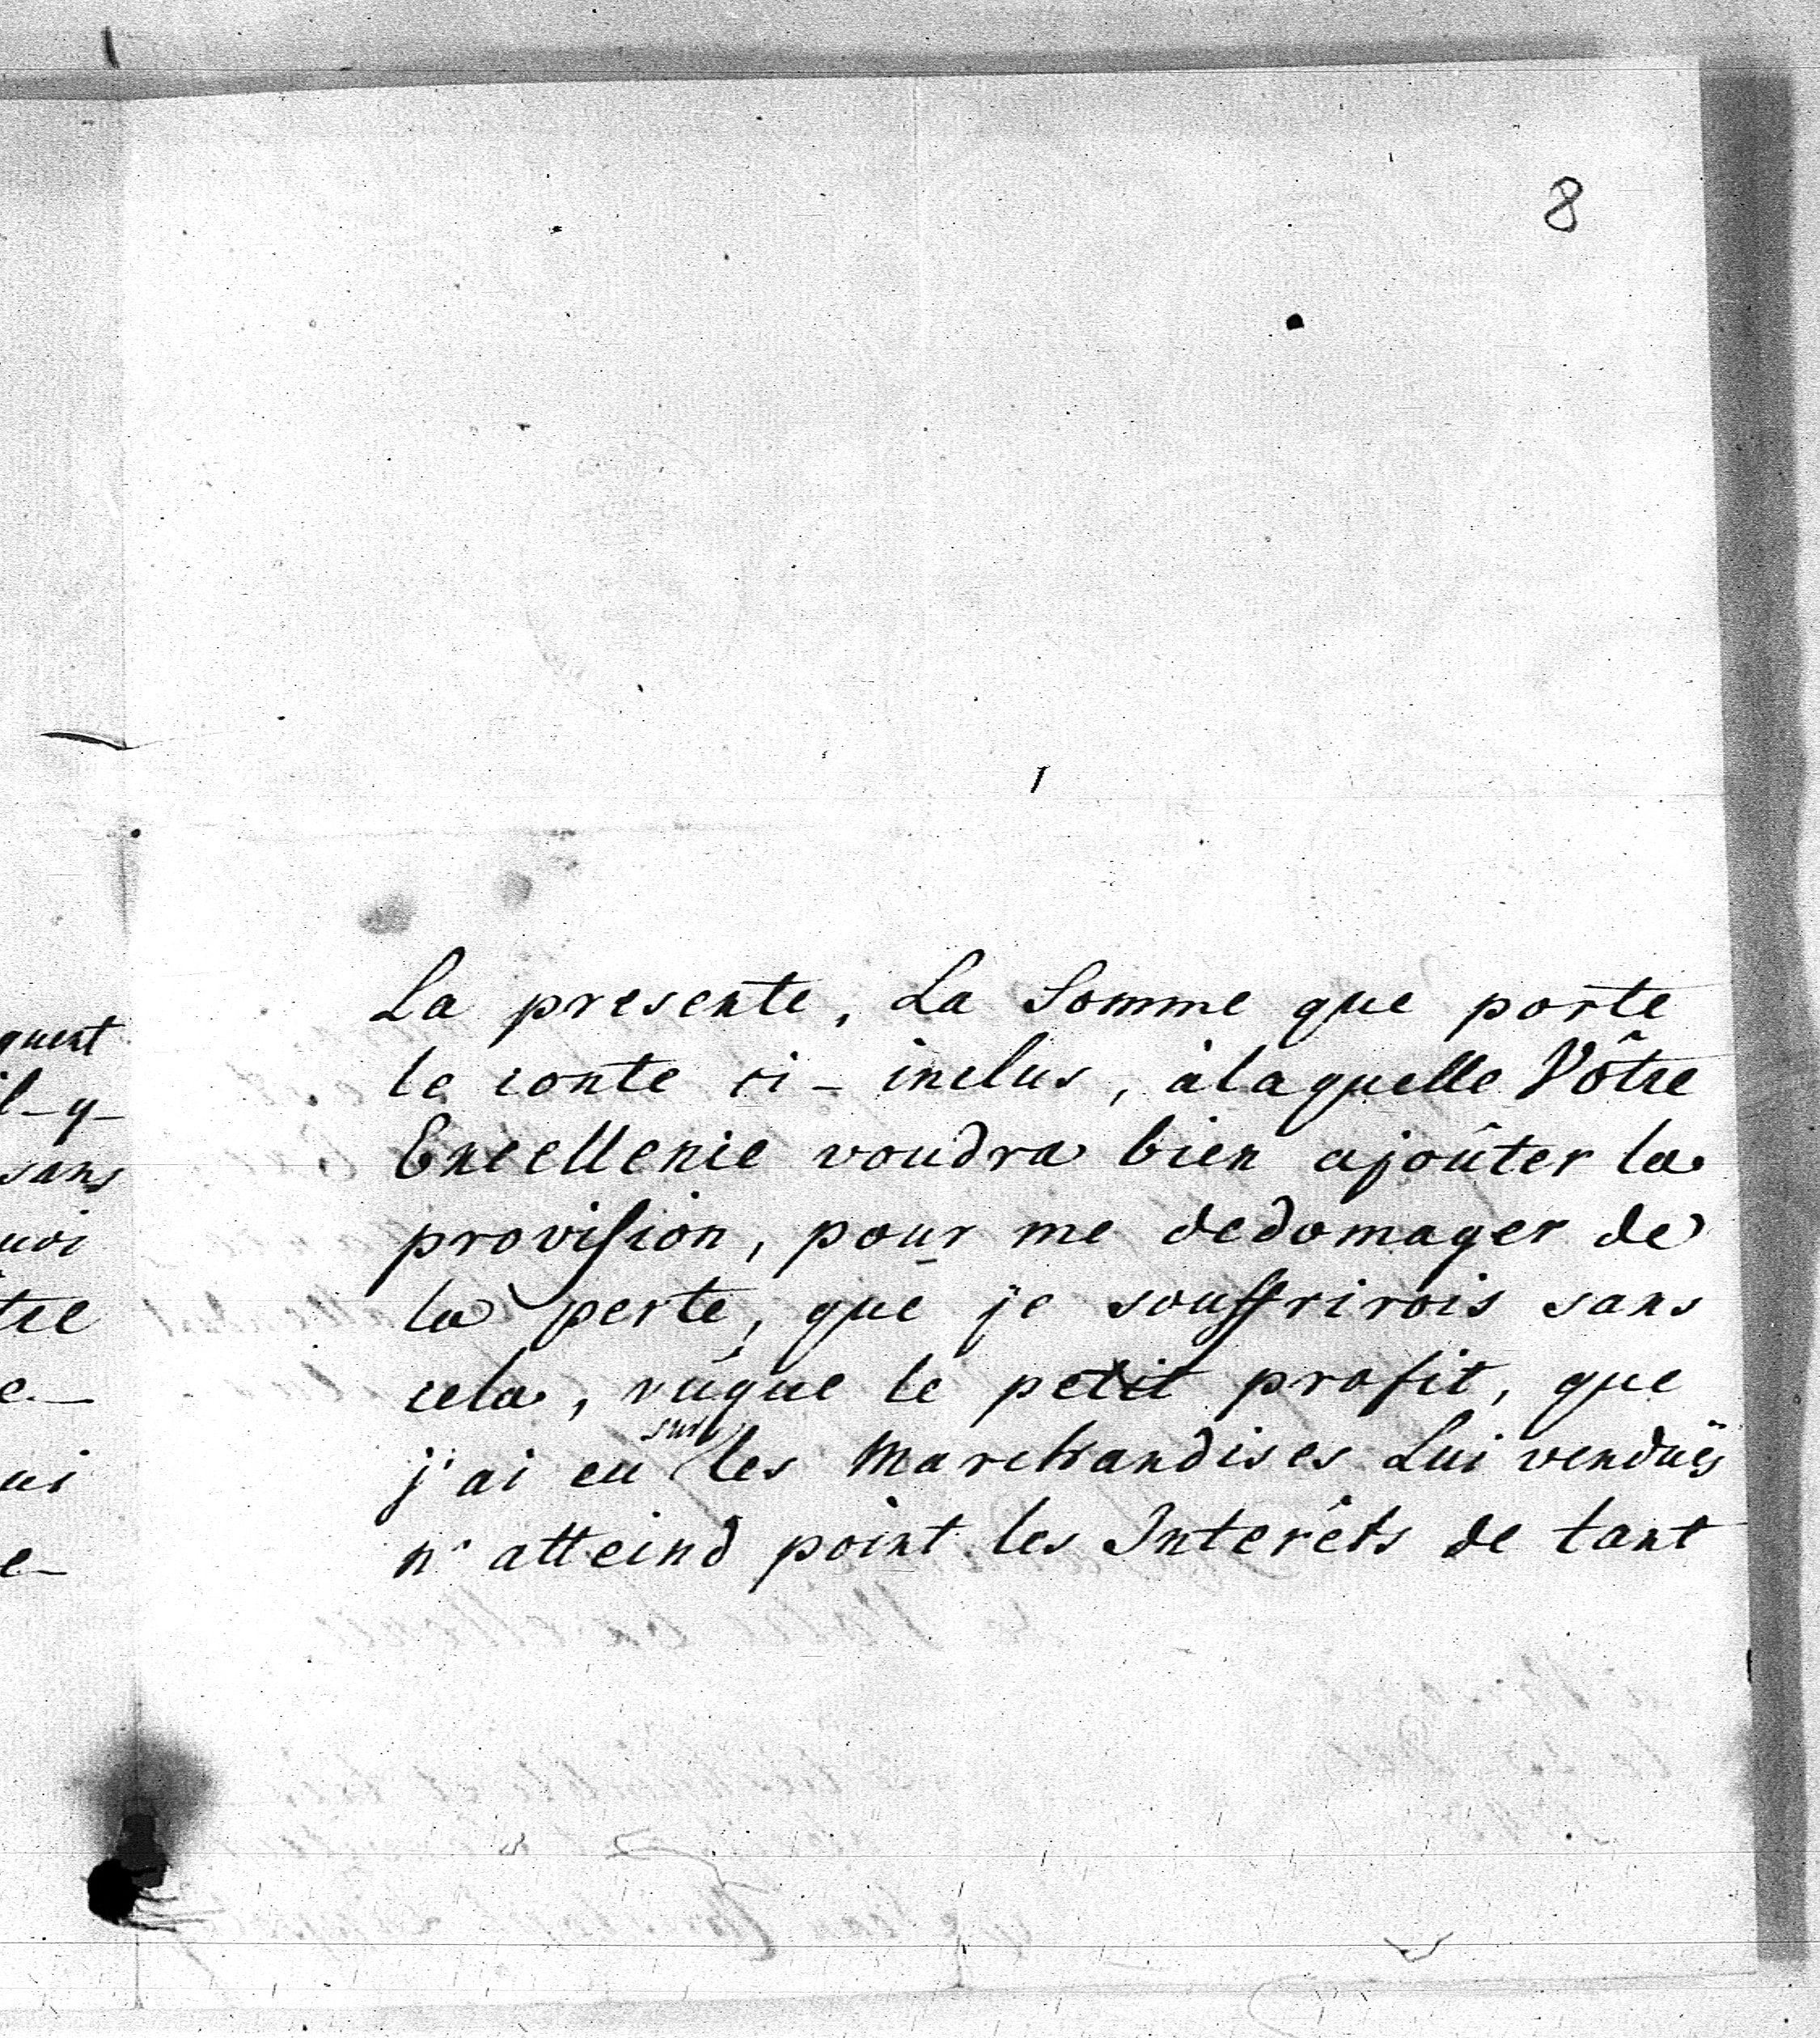 8
La presente, La Somme que porte
le conte ci-inclus, àlaquelle Vôtre
Excellence voudra bien ajoûter la
provision, pour me dedomager de
la perte, que je souffrirois sans
cela, vûque le petit profit, que
j'ai eu sur les Marchandises Lui venduës
n'atteind point les Interêts de tant
quent
il-y-
sans
uoi
tre
e-
ui
e-